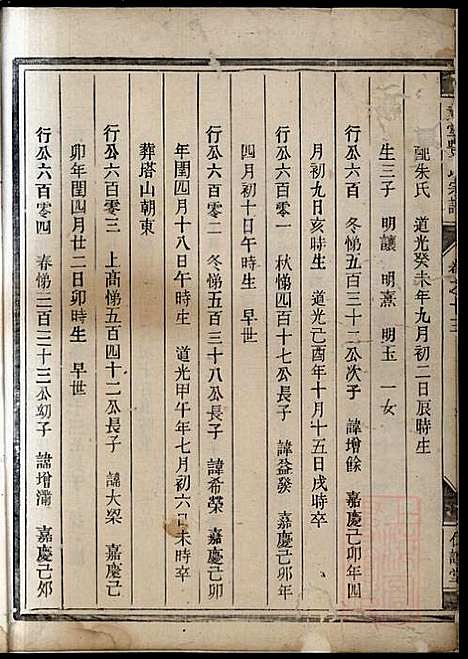 配朱氏 道光癸未年九月初二日辰時生
生三子 明讓 明熹 明玉 一女
行公六百 冬悌五百三十二公次子 諱增餘 嘉慶己卯年四
月初九日亥時生 道光己酉年十月十五日戌時卒
行公六百零一 秋悌四百十七公長子 諱益發 嘉慶己卯年
四月初十日午時生 早世
行公六百零二 冬悌五百三十八公長子 諱希榮 嘉慶己卯
年閏四月十八日午時生 道光甲午年七月初六日未時卒
葬塔山朝東
行公六百零三 上高悌五百四十二公長子 諱大梁 嘉慶己
卯年閏四月廿二日卯時生 早世
行公六百零四 春悌三百三十三公幼子 諱增 嘉慶己卯